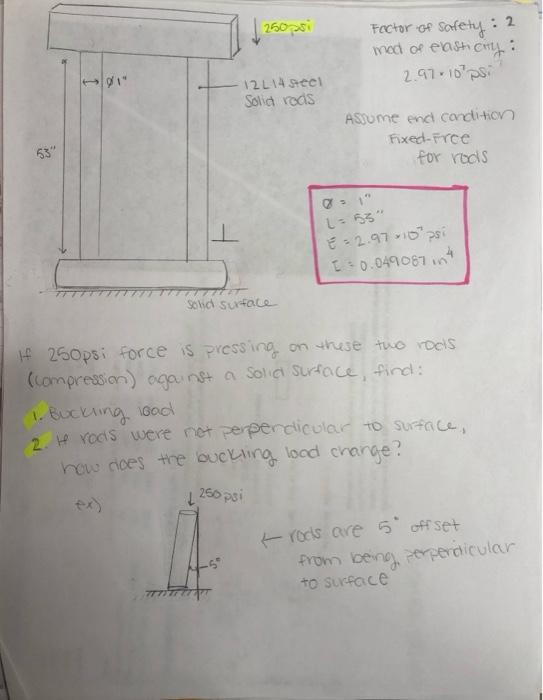 250psi
Factor of Safety: 2
mod of elasticity:
2.97 · 10⁷ psi
ø 1"
12L14 steel
Solid rods
Assume end condition
Fixed-Free
for rods
53"
ø = 1"
L = 53"
E = 2.97 · 10⁷ psi
I = 0.049087 in⁴
solid surface
If 250psi force is pressing on these two rods
(compression) against a solid surface, find:
1. Buckling load
2. If rods were not perpendicular to surface,
how does the buckling load change?
ex)
250 psi
5°
← rods are 5° offset
from being perperdicular
to surface